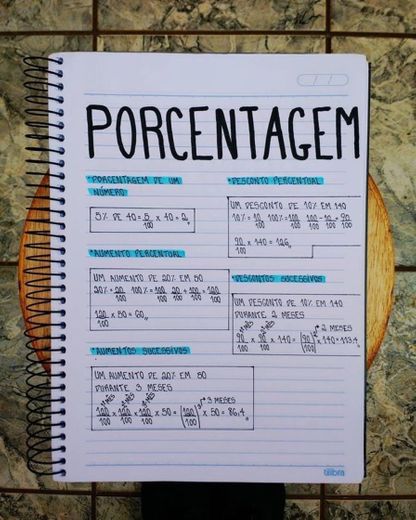 PORCENTAGEM
*PORCENTAGEM DE UM
NÚMERO
5% DE 40 = 5/100 x 40 = 2
*AUMENTO PERCENTUAL
UM AUMENTO DE 20% EM 50
20% = 20/100 100% = 100/100 20/100 + 100/100 = 120/100
120/100 x 50 = 60
*AUMENTOS SUCESSIVOS
UM AUMENTO DE 20% EM 50
DURANTE 3 MESES
1º MÊS 2º MÊS 3º MÊS
120/100 x 120/100 x 120/100 x 50 = (120/100)³ x 50 = 86,4
3 MESES
*DESCONTO PERCENTUAL
UM DESCONTO DE 10% EM 140
10% = 10/100 100% = 100/100 100/100 - 10/100 = 90/100
90/100 x 140 = 126
*DESCONTOS SUCESSIVOS
UM DESCONTO DE 10% EM 140
DURANTE 2 MESES
1º MÊS 2º MÊS
90/100 x 90/100 x 140 = (90/100)² x 140 = 113,4
2 MESES
tilibra